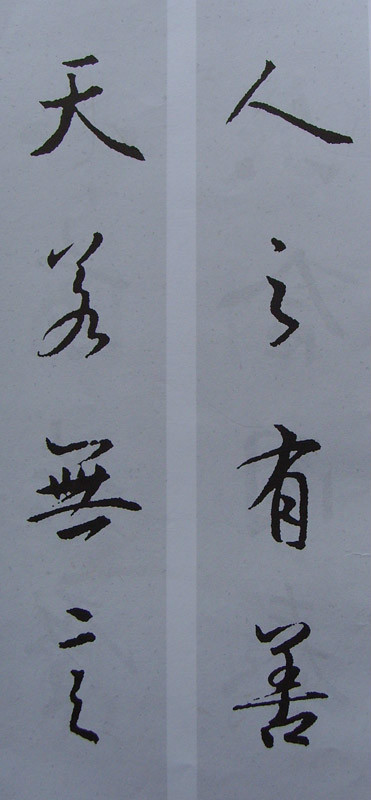 人之有善
天若無言